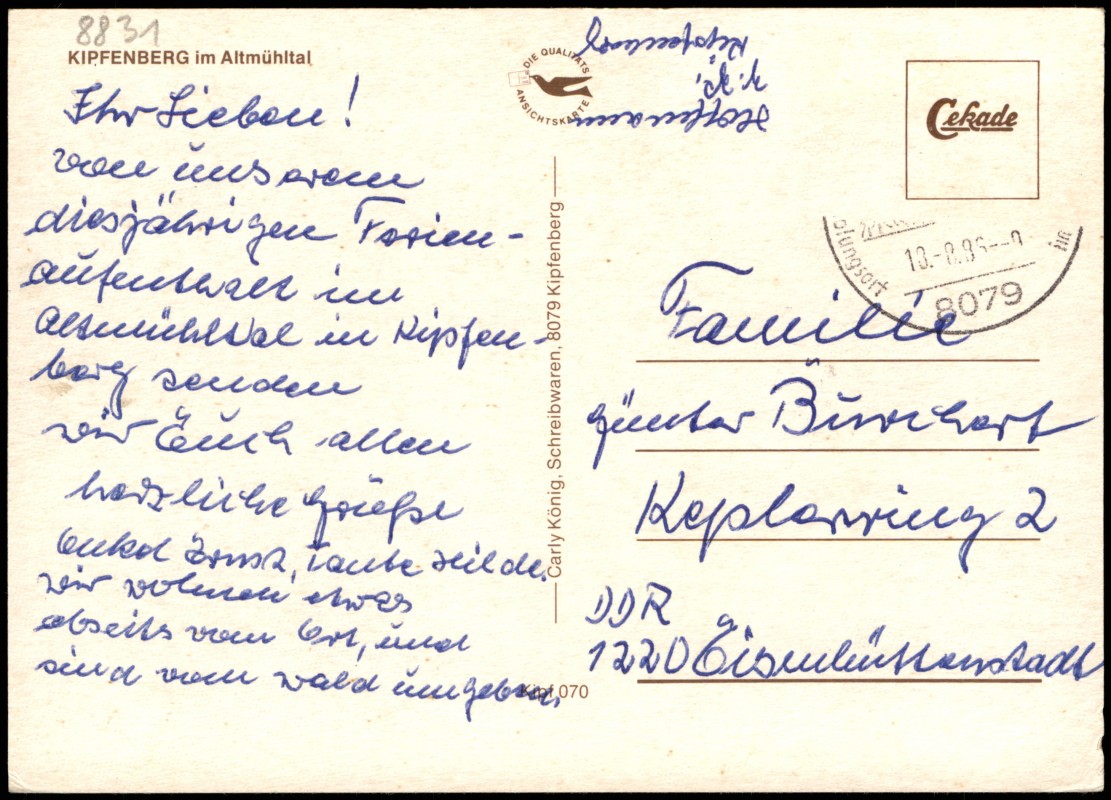 8831
KIPFENBERG im Altmühltal
Ihr Lieben!
von unserem
diesjährigen Ferien-
aufenthalt im
Altmühltal in Kipfen-
berg senden
wir Euch allen
herzliche Grüße
Onkel Ernst, Tante Hilde.
wir wohnen etwas
abseits vom Ort, und
sind vom Wald umgeben.
Kipf 070
DIE QUALITÄTS
ANSICHTSKARTE
Carly König, Schreibwaren, 8079 Kipfenberg
Hoffmann
Kipfenberg
Cekade
olungsort
8079
Familie
Günter Burchert
Keplerring 2
DDR
1220 Eisenhüttenstadt